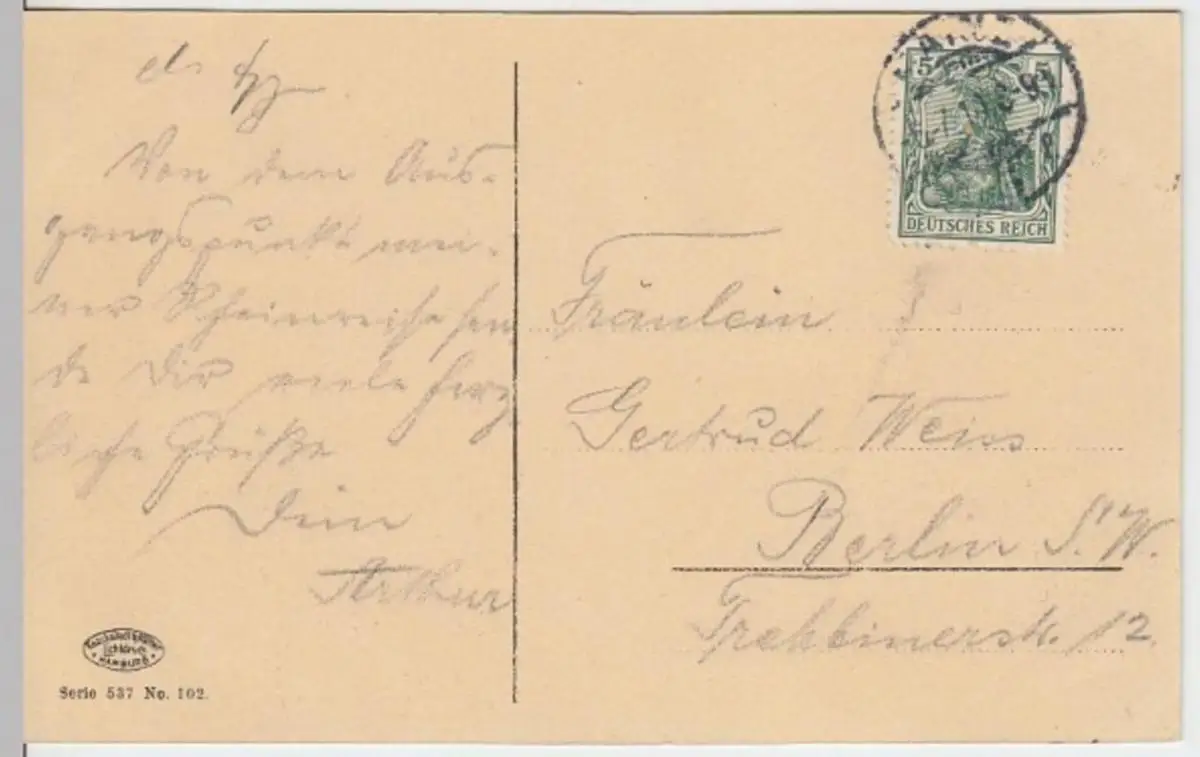 Von dem Aus-
gangspunkt mei-
ner Rheinreise sen
de Dir viele herz
liche Grüße
Dein
Arthur
5 5
DEUTSCHES REICH
Fräulein
Gertrud Weiss
Berlin S.W.
Trebbinerstr. 12.
HAMBURG
Serie 537 No. 102.